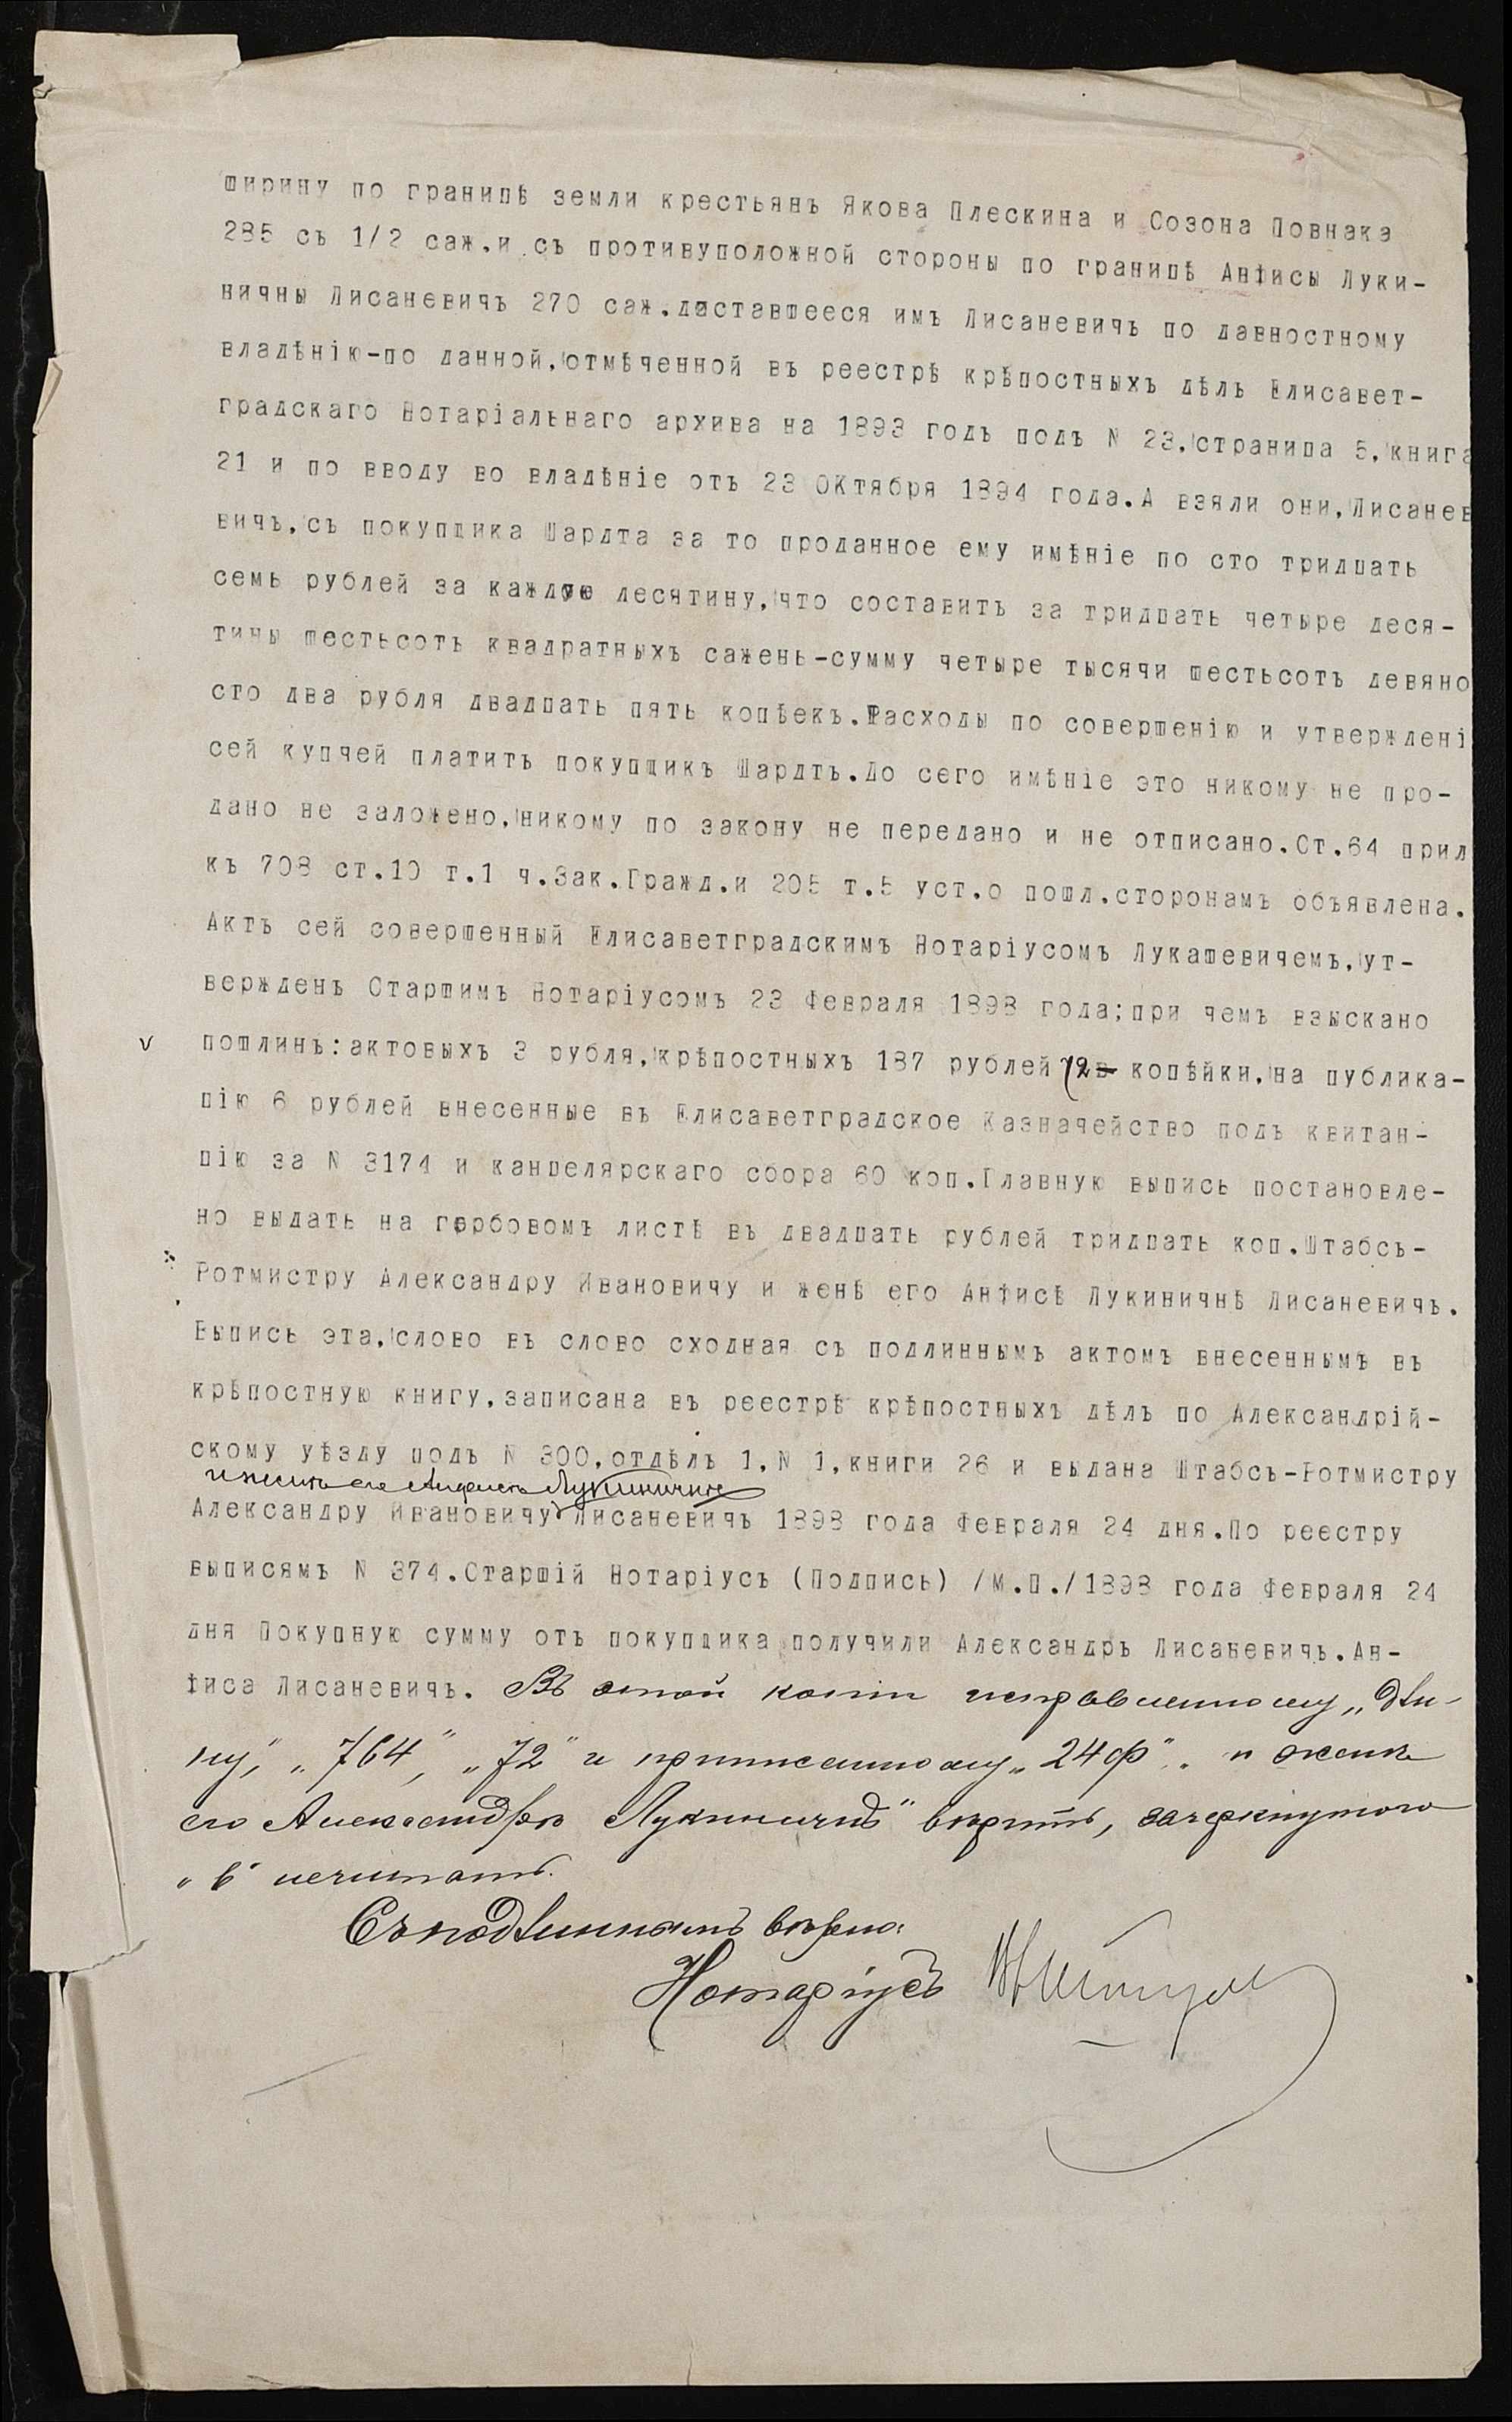 ширину по границѣ земли крестьянъ Якова Плескина и Созона Повнака
285 съ 1/2 саж.и съ противуположной стороны по границѣ Анѳисы Луки-
ничны Лисаневичъ 270 саж.доставшееся имъ Лисаневичъ по давностному
владѣнію-по данной,отмѣченной въ реестрѣ крѣпостныхъ дѣлъ Елисавет-
градскаго Нотаріальнаго архива на 1893 годъ подъ N 23,страница 5,книга
21 и по вводу во владѣніе отъ 23 Октября 1894 года.А взяли они,Лисанев
вичъ,съ покупщика Шардта за то проданное ему имѣніе по сто тридцать
семь рублей за каждую десятину,что составитъ за тридцать четыре деся-
тины шестьсотъ квадратныхъ сажень-сумму четыре тысячи шестьсотъ девяно
сто два рубля двадцать пять копѣекъ.Расходы по совершенію и утвержденi
сей купчей платитъ покупщикъ Шардтъ.До сего имѣніе это никому не про-
дано не заложено,никому по закону не передано и не отписано.Ст.64 прил
къ 708 ст.10 т.1 ч.Зак.Гражд.и 205 т.5 уст.о пошл.сторонамъ объявлена.
Актъ сей совершенный Елисаветградскимъ Нотаріусомъ Лукашевичемъ,ут-
вержденъ Старшимъ Нотаріусомъ 23 Февраля 1898 года;при чемъ взыскано
пошлинъ:актовыхъ 3 рубля,крѣпостныхъ 187 рублей 72 в копѣйки,на публика-
цію 6 рублей внесенные въ Елисаветградское Казначейство подъ квитан-
цію за N 3174 и канцелярскаго сбора 60 коп.Главную выпись постановле-
но выдать на гербовомъ листѣ въ двадцать рублей тридцать коп.Штабсъ-
Ротмистру Александру Ивановичу и женѣ его Анѳисѣ Лукиничнѣ Лисаневичъ.
Выпись эта,слово въ слово сходная съ подлиннымъ актомъ внесеннымъ въ
крѣпостную книгу,записана въ реестрѣ крѣпостныхъ дѣлъ по Александрій-
скому уѣзду подъ N 300,отдѣлъ 1,N 1,книги 26 и выдана Штабсъ-Ротмистру
и женѣ его Анфисѣ Лукиничнѣ
Александру Ивановичу Лисаневичъ 1898 года Февраля 24 дня.По реестру
выписямъ N 374.Старшій Нотаріусъ (Подпись) /М.П./1898 года Февраля 24
дня Покупную сумму отъ покупщика получили Александръ Лисаневичъ.Ан-
ѳиса Лисаневичъ. Въ этой копіи исправленному „дли-
ну", „764", „72" и приписанному „24 ф". „и женѣ
его Александрѣ Лукиничнѣ" вѣрить, зачеркнутого
„в" нечитать.
Съ подлиннымъ вѣрно:
Нотаріусъ